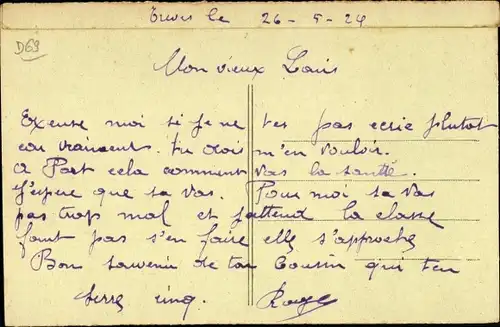 Treves le 26-5-24
D63
Mon vieux Louis
Excuse moi si je ne tes pas ecrie plutot
car vraiment. tu dois m'en vouloir.
a Part cela comment vas la santé.
J'espere que sa vas. Pour moi sa vas
pas trop mal et j'attend la classe
faut pas s'en faire elle s'approche
Bon souvenir de ton Cousin qui t'en
serre cinq.